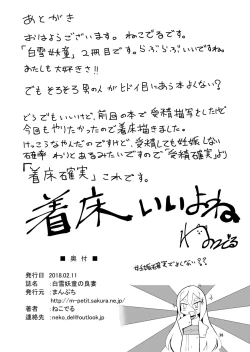 あとがき
おはようございます。ねこでるです。
「白雪妖童」2冊目です。らぶらぶいいですね。
わたしも大好きさ!!
でもそろそろ男の人がヒドイ目にあう本よくない?
どうでもいいけど、前回の本で受精描写をしたけど
今回もやりたかったので着床描きました。
けっこうなやんだのですけど、受精しても妊娠しない
確率 わりとあるみたいですので「受精確実」より
「着床確実」これです。
着床いいよね
ねこでる
妊娠確実でよくない??
■ 奥 付 ■
発行日 2018.02.11
誌名 :白雪妖童の良妻
発行元 :まんぷち
http://m-petit.sakura.ne.jp/
著者 :ねこでる
連絡先 :neko.del@outlook.jp